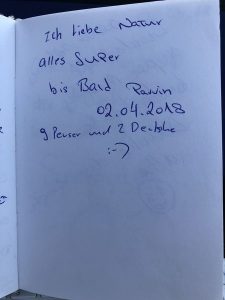 Ich liebe Natur
alles Super
bis Bald Parvin
02.04.2018
9 Perser und 2 Deutsche
:-)